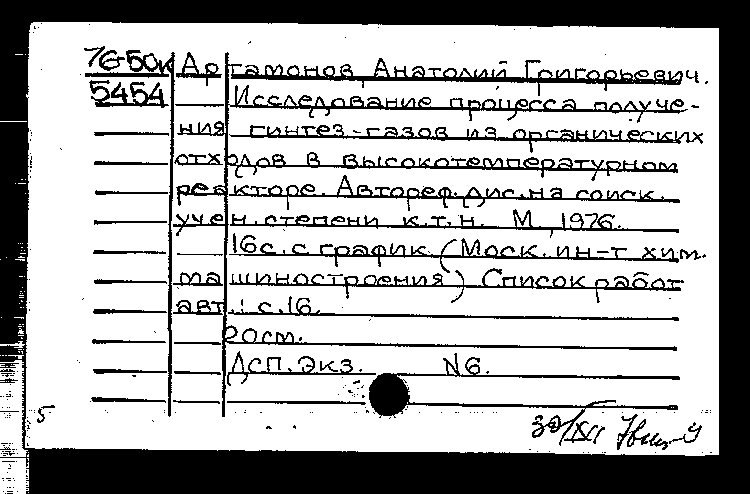 76-50к Артамонов, Анатолий Григорьевич.
5454 Исследование процесса получе-
ния синтез-газов из органических
отходов в высокотемпературном
реакторе. Автореф. дис. на соиск.
учен. степени к.т.н. М., 1976.
16с. с график. (Моск. ин-т хим.
машиностроения) Список работ
авт.: с.16.
20см.
Дсп. Экз. N6.
5